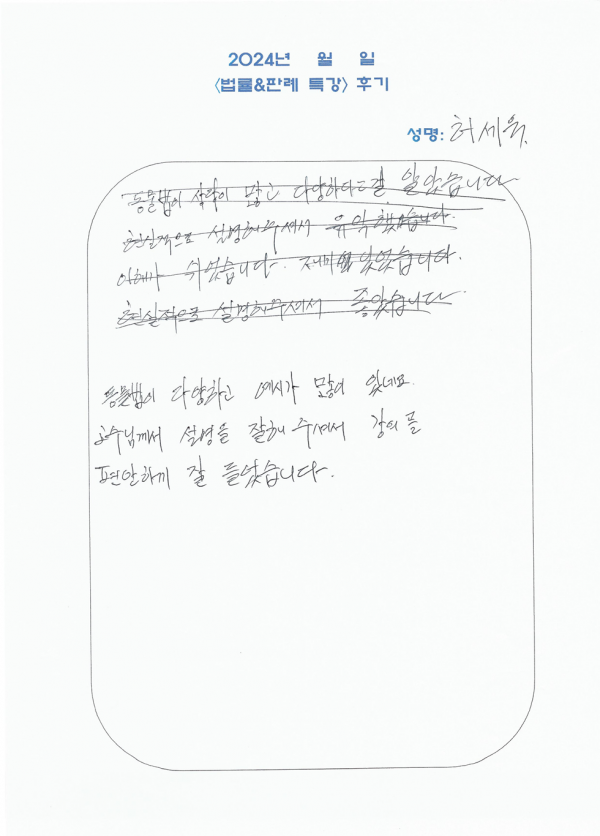 2024년 월 일
<법률&판례 특강> 후기
성명: 허세욱
동물법이 많고 다양하다는걸 알았습니다
현실적으로 설명해주셔서 유익했습니다.
이해가 쉬웠습니다. 재미있었습니다.
현실적으로 설명해주셔서 좋았습니다.
동물법이 다양하고 예시가 많이 있네요.
교수님께서 설명을 잘해 주셔서 강의를
편안하게 잘 들었습니다.